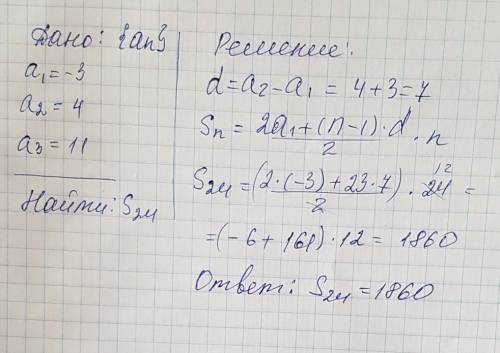 Дано: {an}
a₁=-3
a₂=4
a₃=11
Найти: S₂₄
Решение:
d=a₂-a₁=4+3=7
Sₙ=(2a₁+(n-1)·d)/2·n
S₂₄=(2·(-3)+23·7)/2·24 12=
=(-6+161)·12=1860
Ответ: S₂₄=1860